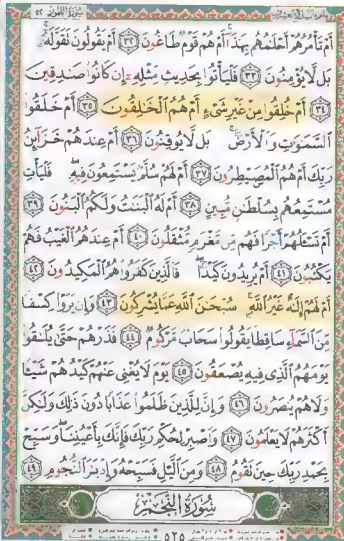 سُورَةُ الطُّورِ ٥٢
أَمۡ تَأۡمُرُهُمۡ أَحۡلَٰمُهُم بِهَٰذَآۚ أَمۡ هُمۡ قَوۡمٞ طَاغُونَ ٣٢ أَمۡ يَقُولُونَ تَقَوَّلَهُۥۚ
بَل لَّا يُؤۡمِنُونَ ٣٣ فَلۡيَأۡتُواْ بِحَدِيثٖ مِّثۡلِهِۦٓ إِن كَانُواْ صَٰدِقِينَ
٣٤ أَمۡ خُلِقُواْ مِنۡ غَيۡرِ شَيۡءٍ أَمۡ هُمُ ٱلۡخَٰلِقُونَ ٣٥ أَمۡ خَلَقُواْ
ٱلسَّمَٰوَٰتِ وَٱلۡأَرۡضَۚ بَل لَّا يُوقِنُونَ ٣٦ أَمۡ عِندَهُمۡ خَزَآئِنُ
رَبِّكَ أَمۡ هُمُ ٱلۡمُصَۜيۡطِرُونَ ٣٧ أَمۡ لَهُمۡ سُلَّمٞ يَسۡتَمِعُونَ فِيهِۖ فَلۡيَأۡتِ
مُسۡتَمِعُهُم بِسُلۡطَٰنٖ مُّبِينٍ ٣٨ أَمۡ لَهُ ٱلۡبَنَٰتُ وَلَكُمُ ٱلۡبَنُونَ ٣٩
أَمۡ تَسۡـَٔلُهُمۡ أَجۡرٗا فَهُم مِّن مَّغۡرَمٖ مُّثۡقَلُونَ ٤٠ أَمۡ عِندَهُمُ ٱلۡغَيۡبُ فَهُمۡ
يَكۡتُبُونَ ٤١ أَمۡ يُرِيدُونَ كَيۡدٗاۖ فَٱلَّذِينَ كَفَرُواْ هُمُ ٱلۡمَكِيدُونَ ٤٢
أَمۡ لَهُمۡ إِلَٰهٌ غَيۡرُ ٱللَّهِۚ سُبۡحَٰنَ ٱللَّهِ عَمَّا يُشۡرِكُونَ ٤٣ وَإِن يَرَوۡاْ كِسۡفٗا
مِّنَ ٱلسَّمَآءِ سَاقِطٗا يَقُولُواْ سَحَابٞ مَّرۡكُومٞ ٤٤ فَذَرۡهُمۡ حَتَّىٰ يُلَٰقُواْ
يَوۡمَهُمُ ٱلَّذِي فِيهِ يُصۡعَقُونَ ٤٥ يَوۡمَ لَا يُغۡنِي عَنۡهُمۡ كَيۡدُهُمۡ شَيۡـٔٗا
وَلَا هُمۡ يُنصَرُونَ ٤٦ وَإِنَّ لِلَّذِينَ ظَلَمُواْ عَذَابٗا دُونَ ذَٰلِكَ وَلَٰكِنَّ
أَكۡثَرَهُمۡ لَا يَعۡلَمُونَ ٤٧ وَٱصۡبِرۡ لِحُكۡمِ رَبِّكَ فَإِنَّكَ بِأَعۡيُنِنَاۖ وَسَبِّحۡ
بِحَمۡدِ رَبِّكَ حِينَ تَقُومُ ٤٨ وَمِنَ ٱلَّيۡلِ فَسَبِّحۡهُ وَإِدۡبَٰرَ ٱلنُّجُومِ ٤٩
سُورَةُ النَّجْمِ
٥٢٥